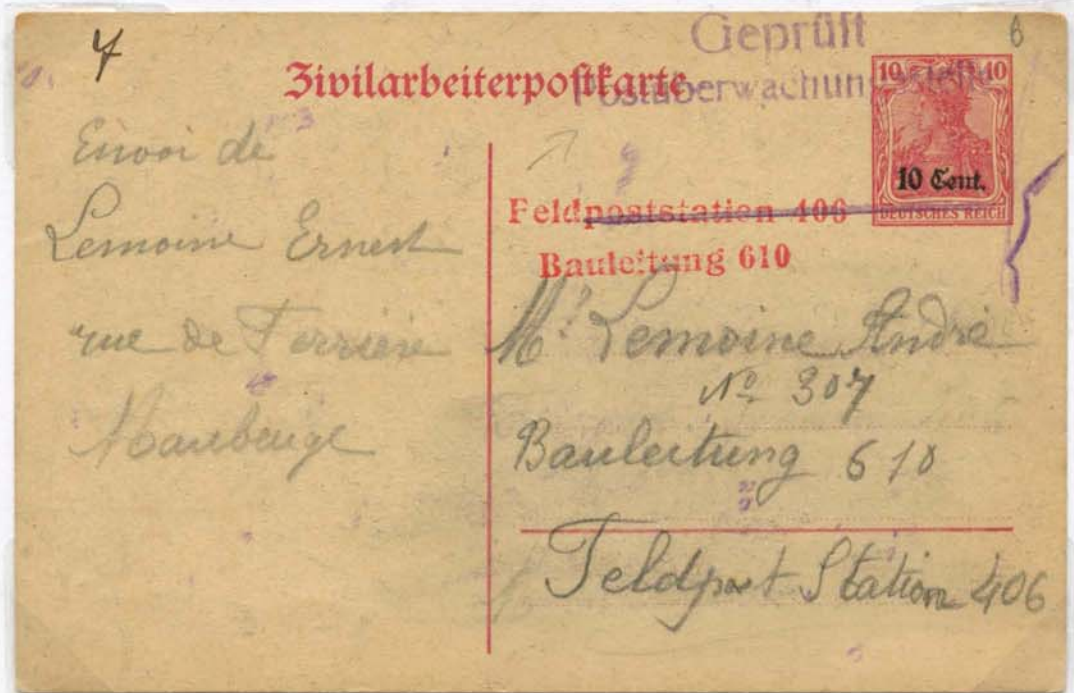 7
Geprüft
Zivilarbeiterpostkarte
Postüberwachungsstelle
10 10
10 Cent.
DEUTSCHES REICH
Envoi de
Lemoine Ernest
rue de Ferrière
Maubeuge
Feldpoststation 406
Bauleitung 610
Mr Lemoine André
No 307
Bauleitung 610
Feldpost Station 406